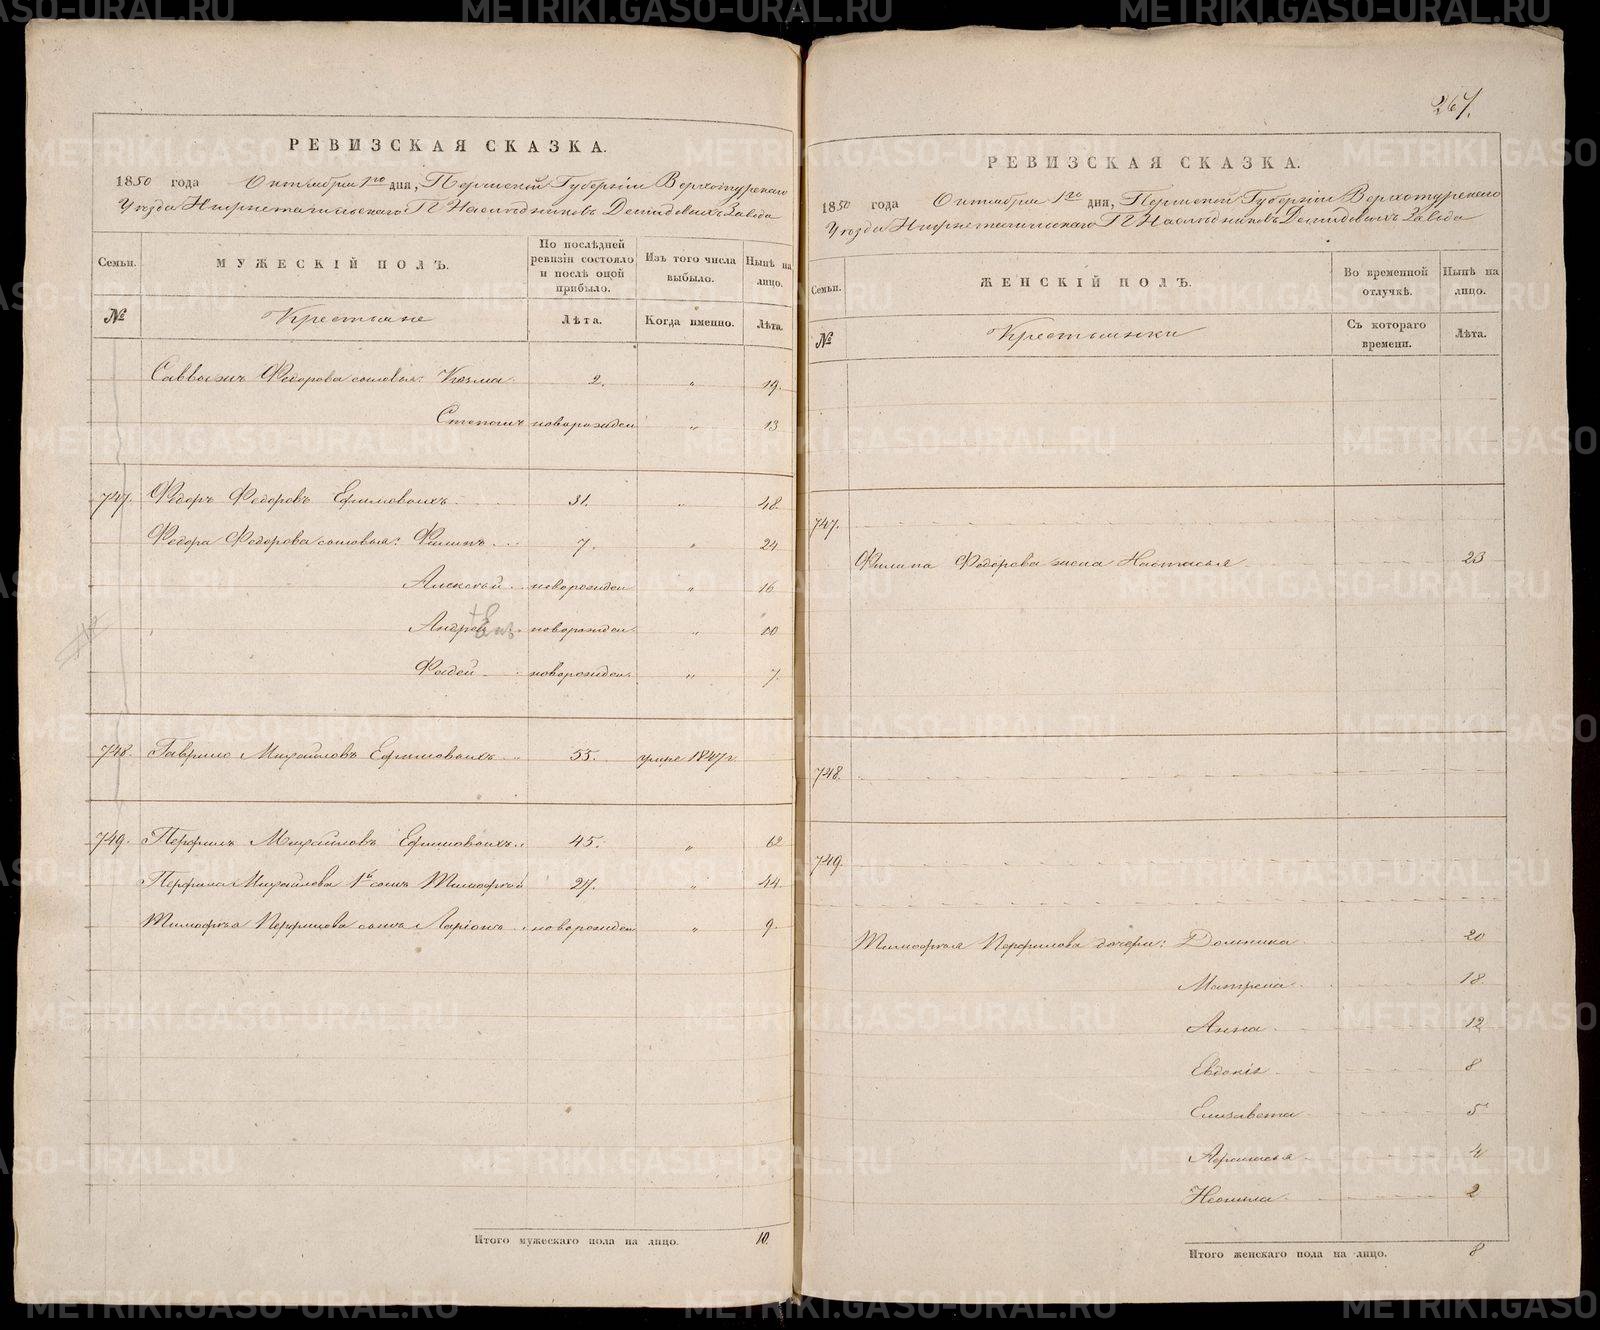 РЕВИЗСКАЯ СКАЗКА.
1850 года Октября 1го дня, Пермской Губерніи Верхотурскаго
Уезда Нижнетагильскаго Гг Наследниковъ Демидовыхъ Завода
Семьи.
МУЖЕСКІЙ ПОЛЪ.
По послѣдней ревизіи состояло и послѣ оной прибыло.
Изъ того числа выбыло.
Нынѣ на лицо.
№
Крестьяне
Лѣта.
Когда именно.
Лѣта.
Федорова сыновья: Козма 2. " 19.
Степанъ новорожден " 13
747. Федоръ Федоровъ Ефимовыхъ 31. " 48.
Федора Федорова сыновья: Филипъ 7. " 24
Алексѣй новорожден " 16
Андрей новорожден " 10
Фадей новорожден " 7.
748. Гаврило Михайловъ Ефимовыхъ 55. умре 1847г.
749. Перфилъ Михайловъ Ефимовыхъ 45. " 62
Перфила Михайлова 1й сынъ Тимофѣй 27. " 44.
Тимофѣя Перфилова сынъ Ларіонъ новорожден " 9.
Итого мужескаго пола на лицо. 10.
267.
РЕВИЗСКАЯ СКАЗКА.
1850 года Октября 1го дня, Пермской Губерніи Верхотурскаго
Уезда Нижнетагильскаго Гг Наследниковъ Демидовыхъ Завода
Семьи.
ЖЕНСКІЙ ПОЛЪ.
Во временной отлучкѣ.
Нынѣ на лицо.
№
Крестьянки
Съ котораго времени.
Лѣта.
747.
Филипа Федорова жена Настасья 23
748.
749.
Тимофѣя Перфилова дочери: Домника 20
Матрена 18.
Анна 12
Евдокія 8
Елизавета 5
Афанасья 4
Неонила 2
Итого женскаго пола на лицо. 8
METRIKI.GASO-URAL.RU